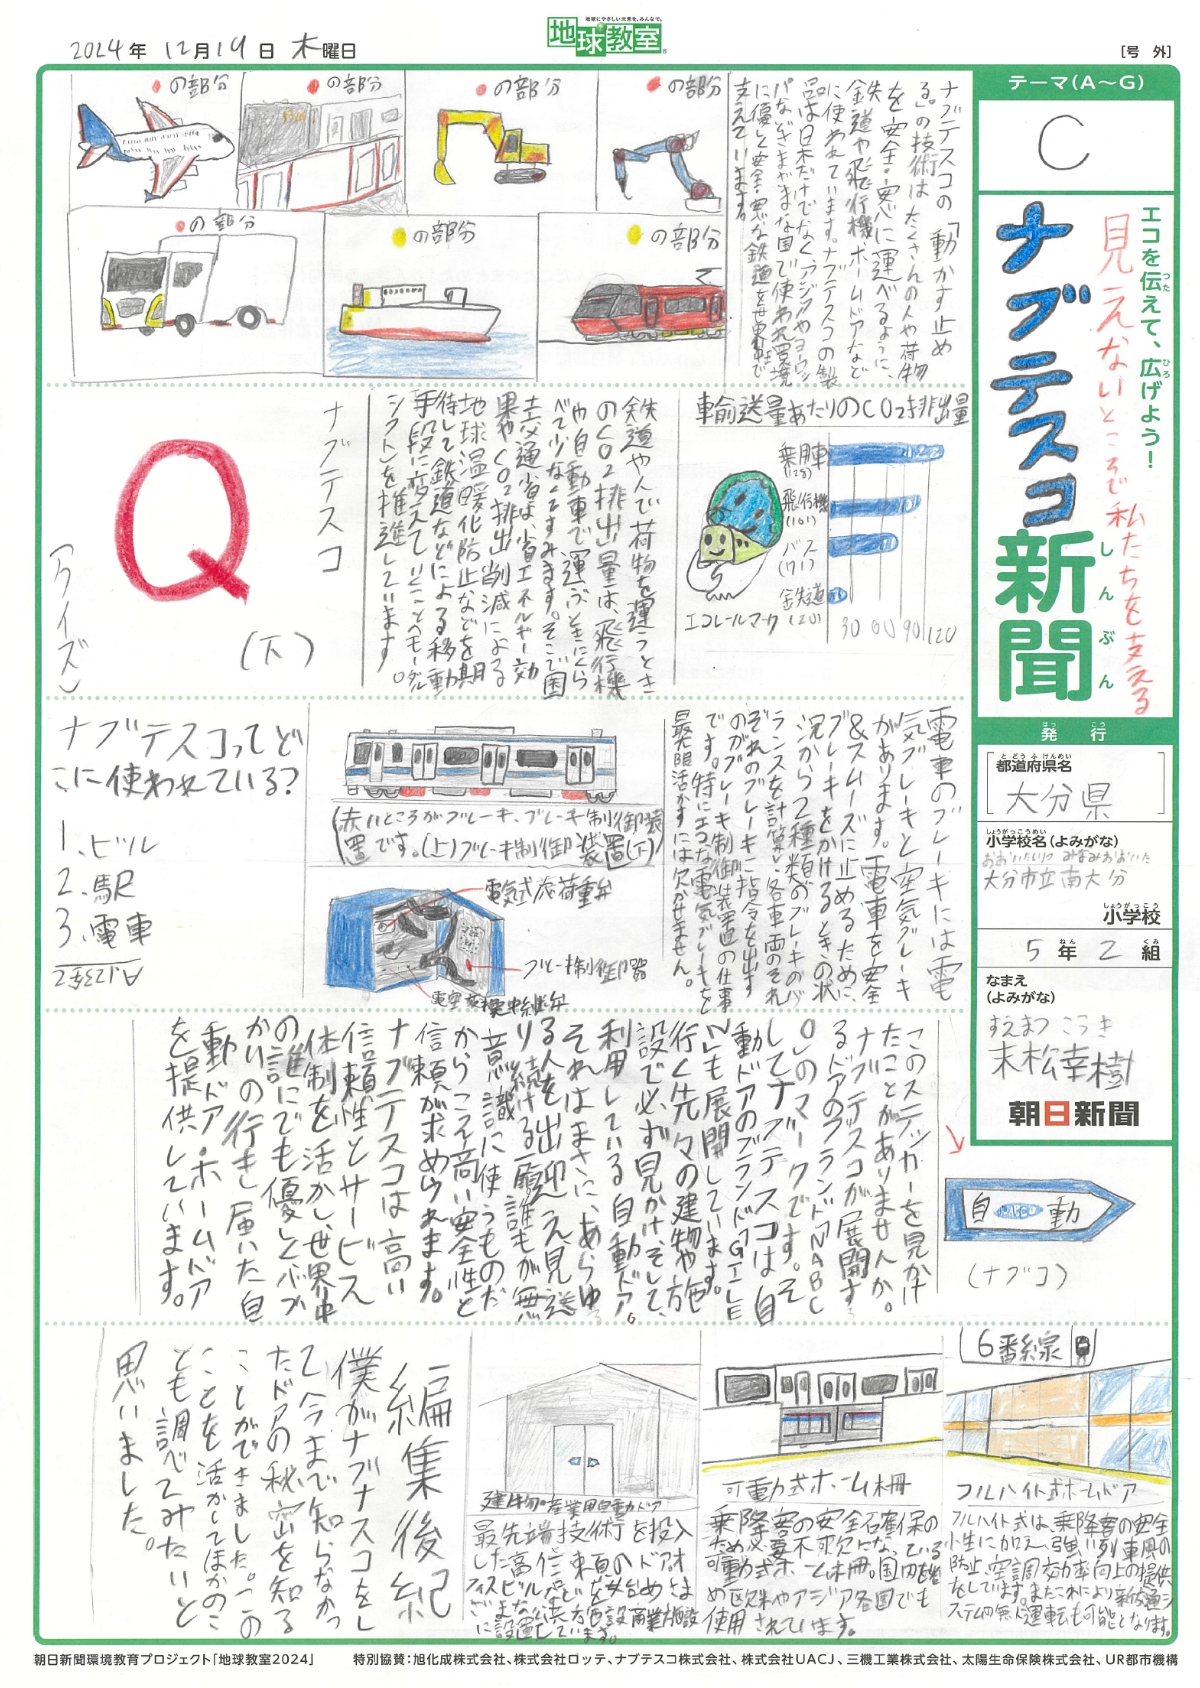 2024年 12月19日 木曜日
地球にやさしい未来を、みんなで。
地球教室
[号 外]
テーマ(A～G)
C
エコを伝えて、広げよう!
つた
ひろ
見えないところで私たちを支える
ナブテスコ
新聞
しんぶん
発 行
はっ こう
都道府県名
とどうふけんめい
大分県
小学校名(よみがな)
しょうがっこうめい
おおいたしりつ みなみおおいた
大分市立南大分
小学校
しょうがっこう
5年2組
ねん くみ
なまえ
(よみがな)
すえまつ こうき
末松幸樹
朝日新聞
ナブテスコの「動かす止め
る。」の技術はたくさんの人や荷物
を安全・安心に運べるように、
鉄道や飛行機、ホームドアなど
に使われています。ナブテスコの製
品は日本だけでなく、アジアやヨーロッ
パなどさまざまな国で使われ環境
に優しく安全・安心な鉄道を世界中で
支えています。
●の部分
●の部分
●の部分
●の部分
●の部分
●の部分
●の部分
輸送量あたりのCO2排出量
乗用車
(128)
飛行機
(101)
バス
(71)
鉄道
(20)
30 60 90 120
エコレールマーク
鉄道やんで荷物を運ぶとき
のCO2排出量は、飛行機
や自動車で運ぶときにくら
べて少なくてすみます。そこで国
土交通省は、省エネルギー効
果やCO2排出削減による
地球温暖化防止などを期
待して鉄道などによる移動
手段に変えていくことのモーダル
シフトを推進しています。
ナブテスコ
Q
(下)
(クイズ)
電車のブレーキには電
気ブレーキと空気ブレーキ
があります。電車を安全
&スムーズに止めるために、
ブレーキをかけるときの状
況から2種類のブレーキのバ
ランスを計算し、各車両のそれ
ぞれのブレーキに指令を出す
のがブレーキ制御装置の仕事
です。特にエコな電気ブレーキを
最大限活かすには欠かせません。
(赤いところがブレーキ、ブレーキ制御装
置です。(上)ブレーキ制御装置(下)
電気式応荷重弁
ブレーキ制御器
ナブテスコってど
こに使われている?
1.ビル
2.駅
3.電車
A.123全て
自 NABCO 動
(ナブコ)
このステッカーを見かけ
たことがありませんか。
ナブテスコが展開す
るドアのブランド「NABC
O」のマークです。そ
してナブテスコは自
動ドアのブランド「GILGE
N」も展開しています。
行く先々の建物や施
設で必ず見かけ、そして、
利用している自動ドア。
それはまさに、あらゆ
る人を出迎え見送
り続ける扉。誰もが無
意識に使うものだ
からこそ高い安全性と
信頼が求められます。
ナブテスコは高い
信頼性とサービス
体制を活かし、世界中
の誰にでも優しくバブ
かいの行き届いた自
動ドア・ホームドア
を提供しています。
6番線
フルハイト式ホームドア
フルハイト式は、乗降客の安全
性に加え、強い列車風の
防止、空調効率向上の提供
をしています。またこれにより新交通シ
ステムの無人運転も可能となります。
可動式ホーム柵
乗降客の安全確保の
ため必要不可欠になっている
可動式ホーム柵。国内をはじ
め欧米やアジア各国でも
使用されています。
建物・産業用自動ドア
最先端技術を投入
編集後記
僕がナブテスコをし
て今まで知らなかっ
たドアの秘密を知る
ことができました。この
ことを活かしてほかのこ
とも調べてみたいと
思いました。
朝日新聞環境教育プロジェクト「地球教室2024」
特別協賛:旭化成株式会社、株式会社ロッテ、ナブテスコ株式会社、株式会社UACJ、三機工業株式会社、太陽生命保険株式会社、UR都市機構